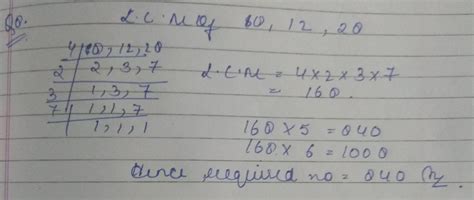 Q8. L.C.M of 8, 12, 28
4 | 8, 12, 28
2 | 2, 3, 7
3 | 1, 3, 7
7 | 1, 1, 7
1, 1, 1
L.C.M = 4 x 2 x 3 x 7
= 168.
168 x 5 = 840
168 x 6 = 1008
Hence required no = 840